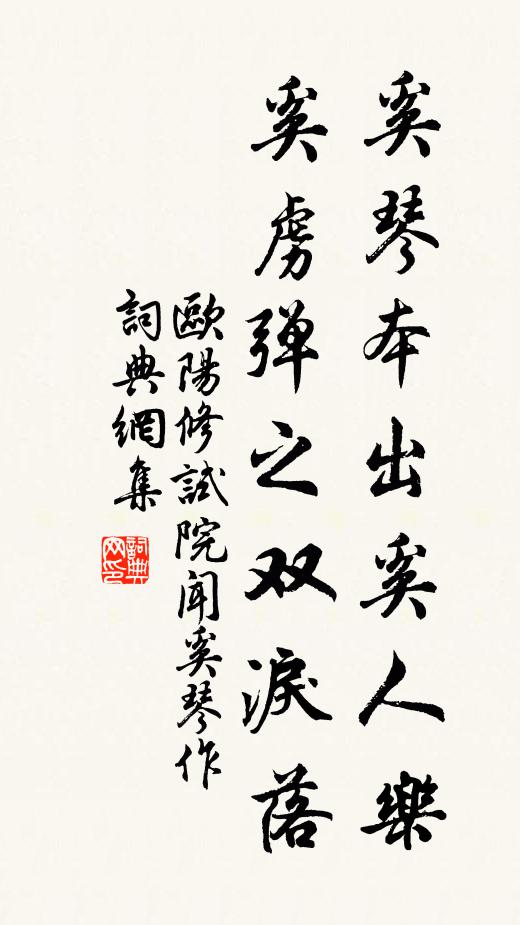 奚琴本出奚人樂
奚虜弹之双淚落
歐陽修試院聞奚琴作
詞典網集
詞典
网印